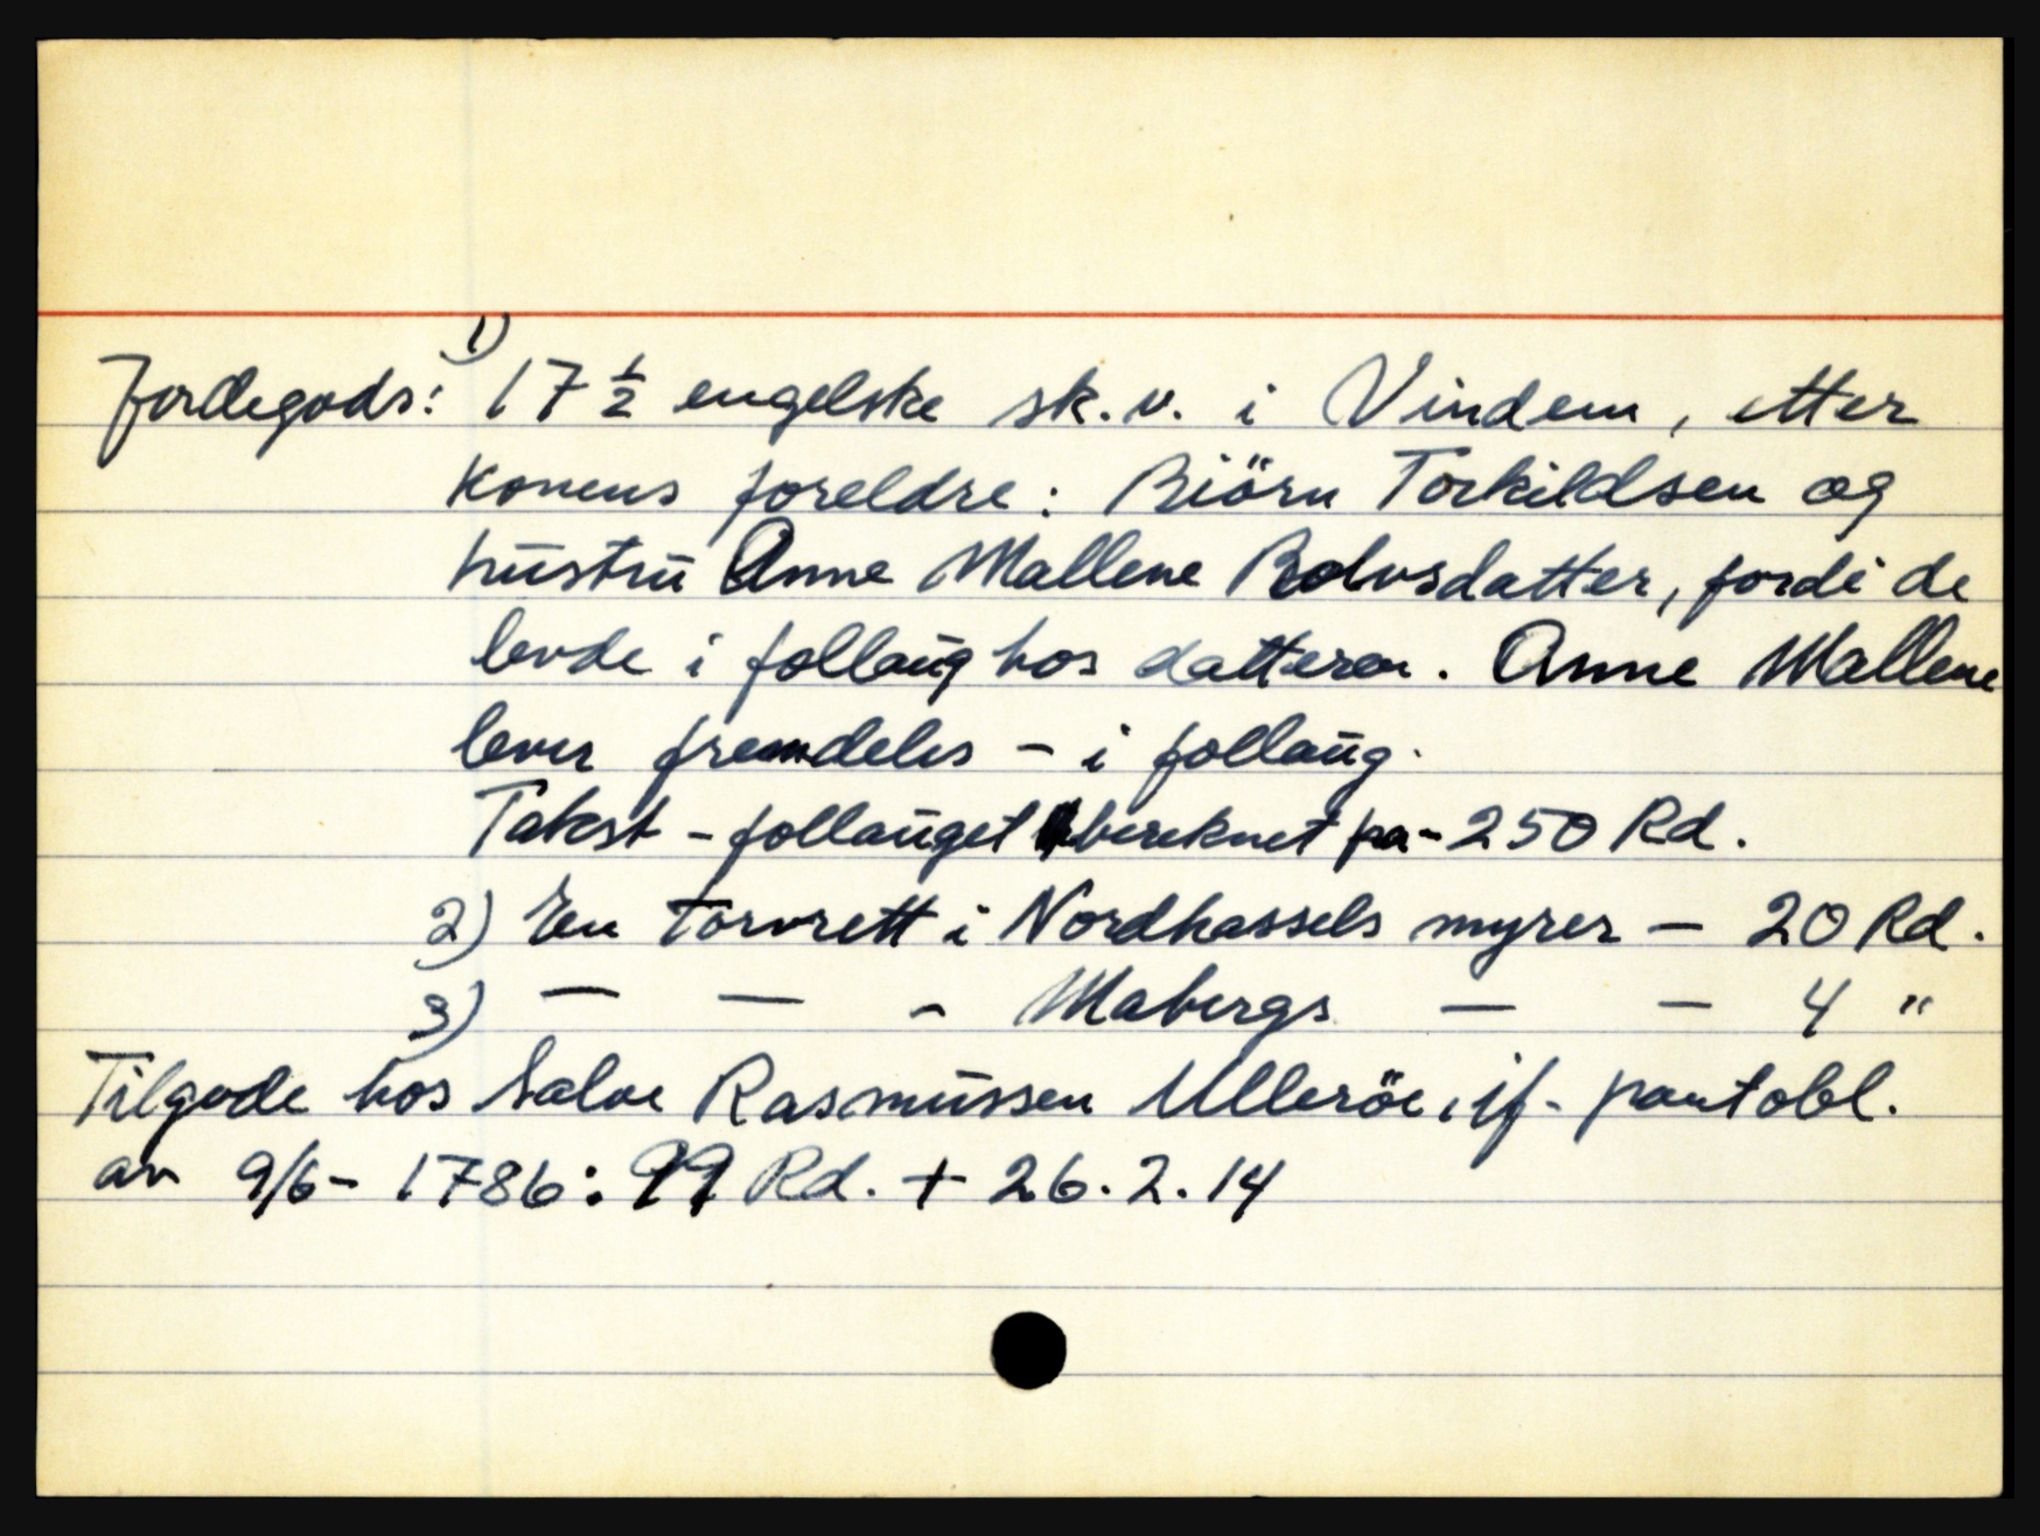 Jordegods: 1) 17 ½ engelske sk. v. i Vindem, etter
konens foreldre: Biörn Torkildsen og
hustru Anne Mallene Rolvsdatter, fordi de
levde i follaug hos datteren. Anne Mallene
lever fremdeles - i follaug.
Takst - follauget bereknet pa - 250 Rd.
2) En torvrett i Nordhassels myrer - 20 Rd.
3) — — - Mabergs — — 4 "
Tilgode hos Salve Rasmussen Ulleröe, if. pantobl.
av 9/6 - 1786: 99 Rd. + 26.2.14